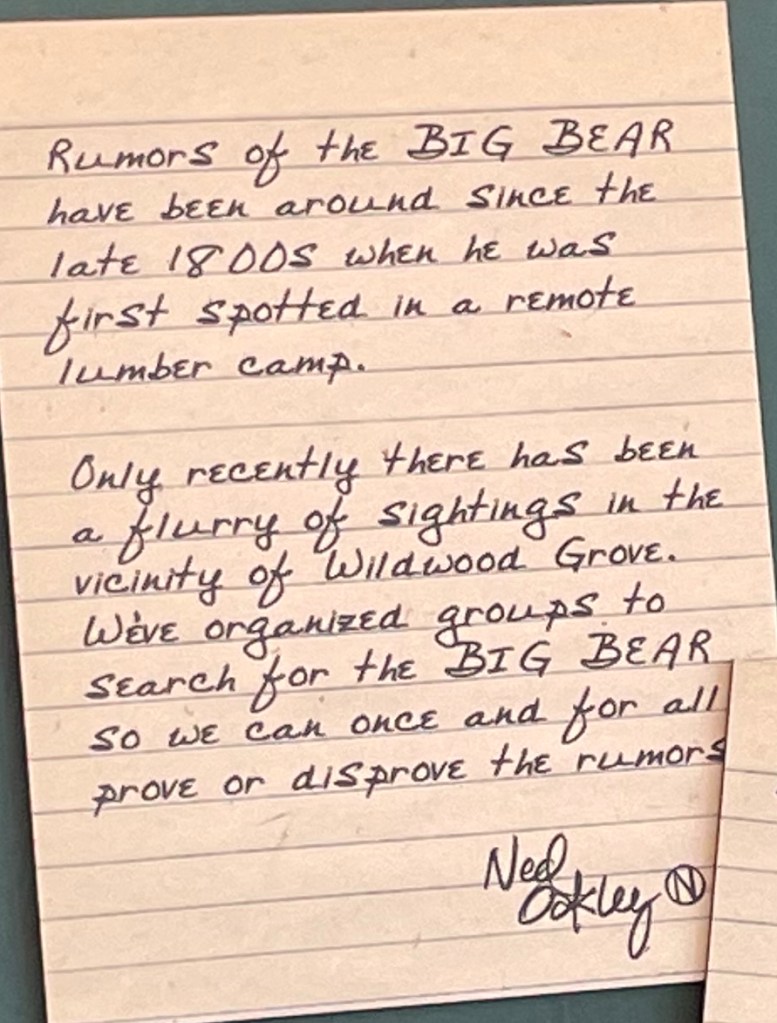 Rumors of the BIG BEAR
have been around since the
late 1800s when he was
first spotted in a remote
lumber camp.
Only recently there has been
a flurry of sightings in the
vicinity of Wildwood Grove.
We've organized groups to
search for the BIG BEAR
so we can once and for all
prove or disprove the rumors
Ned
Oakley Ⓝ